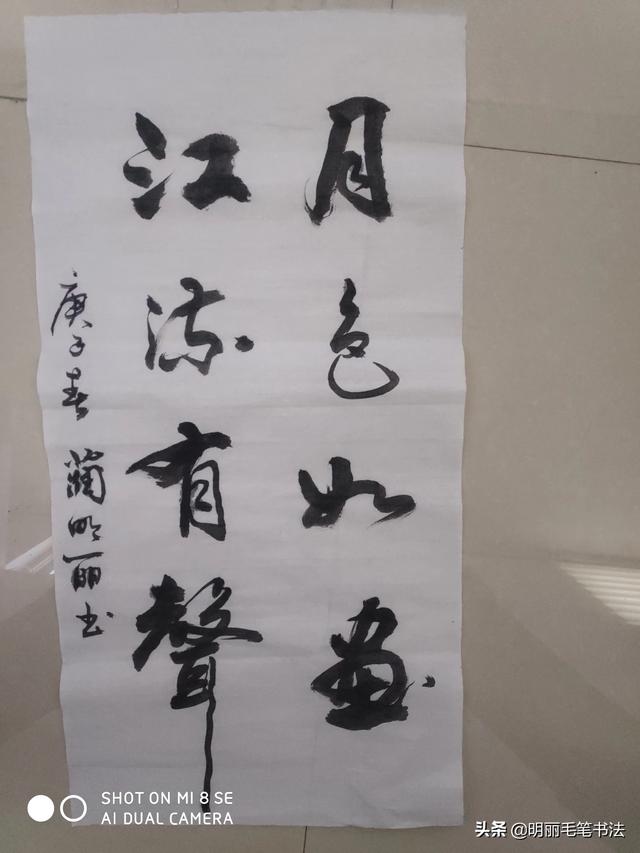 月色如畫
江流有聲
庚子春 蔺明丽书
SHOT ON MI 8 SE
AI DUAL CAMERA
头条 @明丽毛笔书法